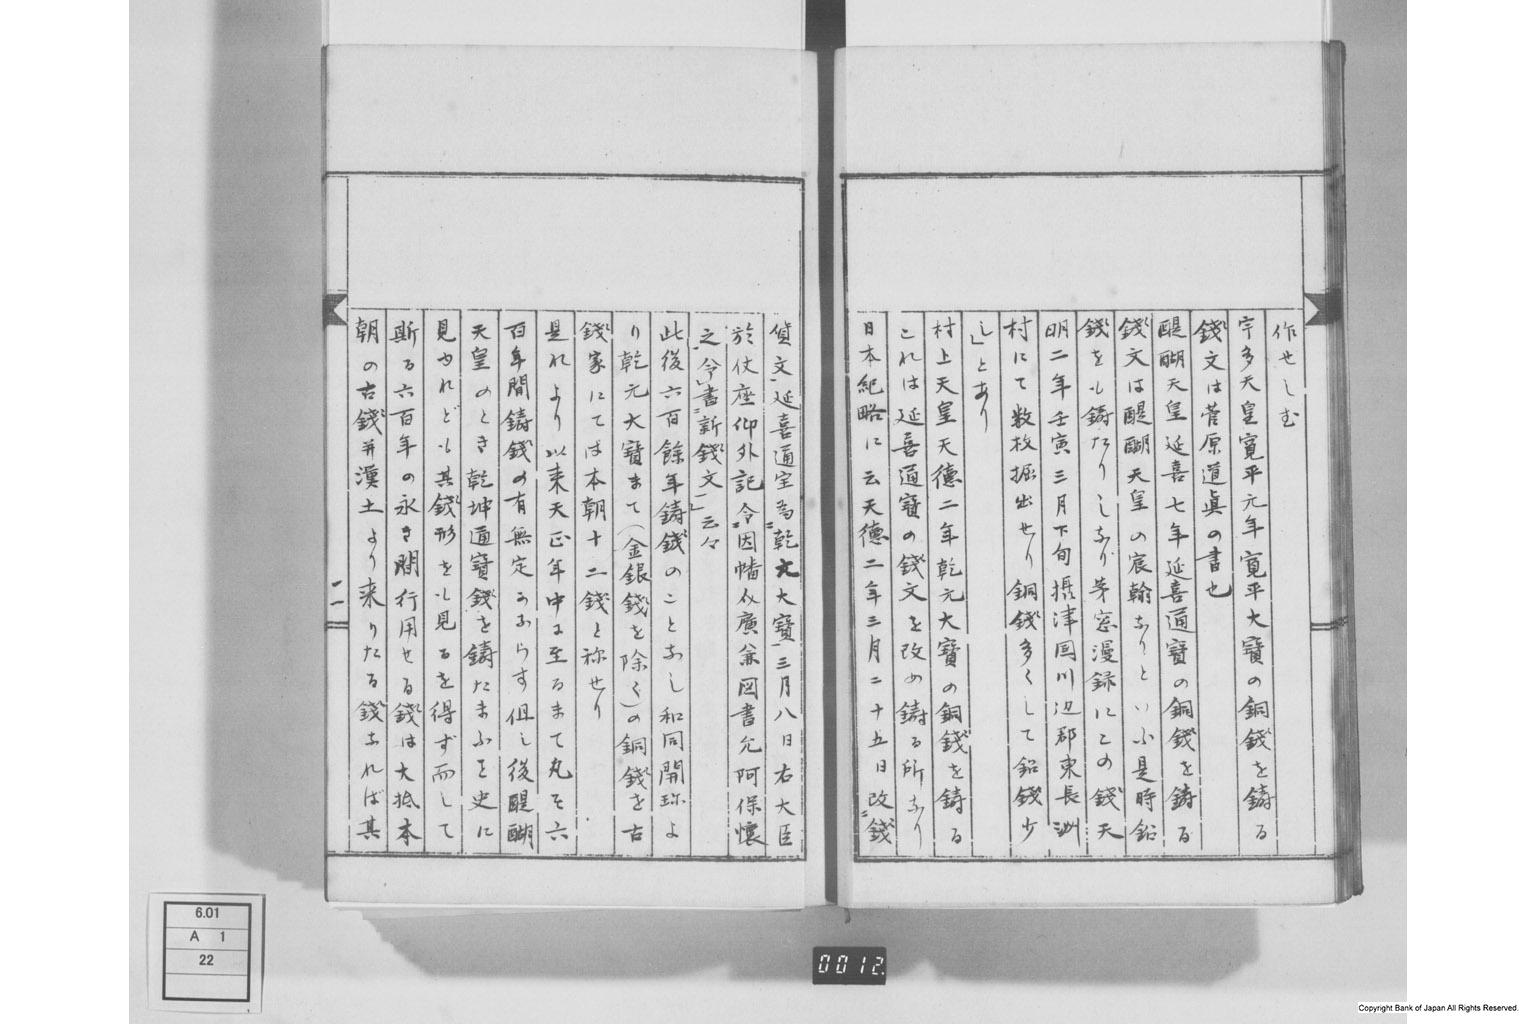 作せしむ
宇多天皇寛平元年寛平大寶の銅錢を鑄る
錢文は菅原道眞の書也
醍醐天皇延喜七年延喜通寶の銅錢を鑄る
錢文は醍醐天皇の宸翰なりといふ是時鉛
錢をも鑄たりしなり茅窓漫録にこの錢天
明二年壬寅三月下旬攝津国川辺郡東長洲
村にて数枚掘出せり銅錢多くして鉛錢少
し」とあり
村上天皇天德二年乾元大寶の銅錢を鑄る
これは延喜通寶の錢文を改め鑄る所なり
日本紀略に云天德二年三月二十五日改錢
貨文延喜通宝為乾文大寶」三月八日右大臣
於仗座仰外記令因幡以廣兼図書允阿保懷
之令書新錢文」云々
此後六百餘年鑄錢のことなし和同開珎よ
り乾元大寶まて(金銀錢を除く)の銅錢を古
錢家にては本朝十二錢と称せり
是れより以来天正年中に至るまて凡そ六
百年間鑄錢の有無定かならす但し後醍醐
天皇のとき乾坤通寶錢を鑄たまふこと史に
見ゆれども其錢形をも見るを得ず而して
斯る六百年の永き間行用せる錢は大抵本
朝の古錢并漢土より来りたる錢なれば其
二
6.01
A 1
22
0012.
Copyright Bank of Japan All Rights Reserved.